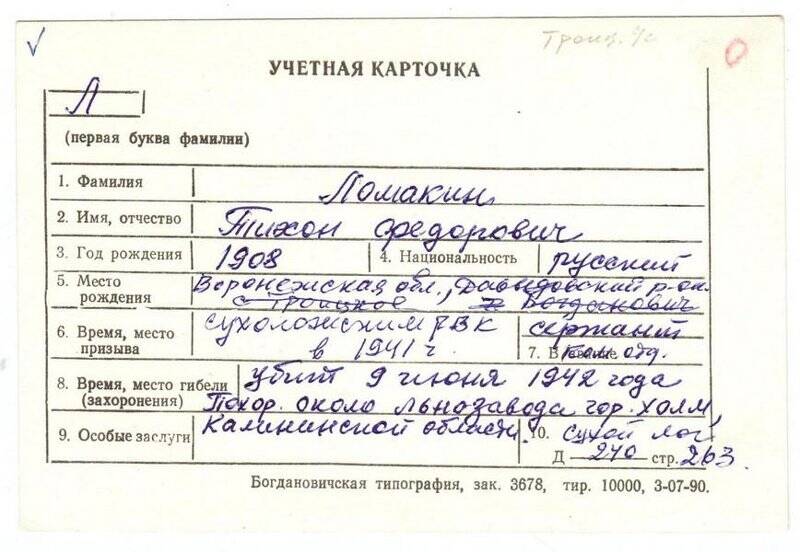 Троиц. с/с
УЧЕТНАЯ КАРТОЧКА
Л
(первая буква фамилии)
1. Фамилия Ломакин
2. Имя, отчество Тихон Федорович
3. Год рождения 1908 4. Национальность русский
5. Место рождения Воронежская обл., Давыдовский р-он.
с Троицкое г. Богданович
6. Время, место призыва Сухоложским РВК в 1941 г.
сержант
7. В звание ком. отд.
8. Время, место гибели (захоронения) убит 9 июня 1942 года
Похор. около льнозавода гор. Холм,
9. Особые заслуги Калининской области. 10. Сухой Лог
Д 240 стр. 263.
Богдановичская типография, зак. 3678, тир. 10000, 3-07-90.